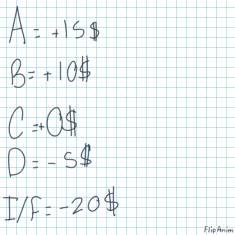 A = +15$
B = +10$
C = +0$
D = -5$
I/F = -20$
FlipAnim